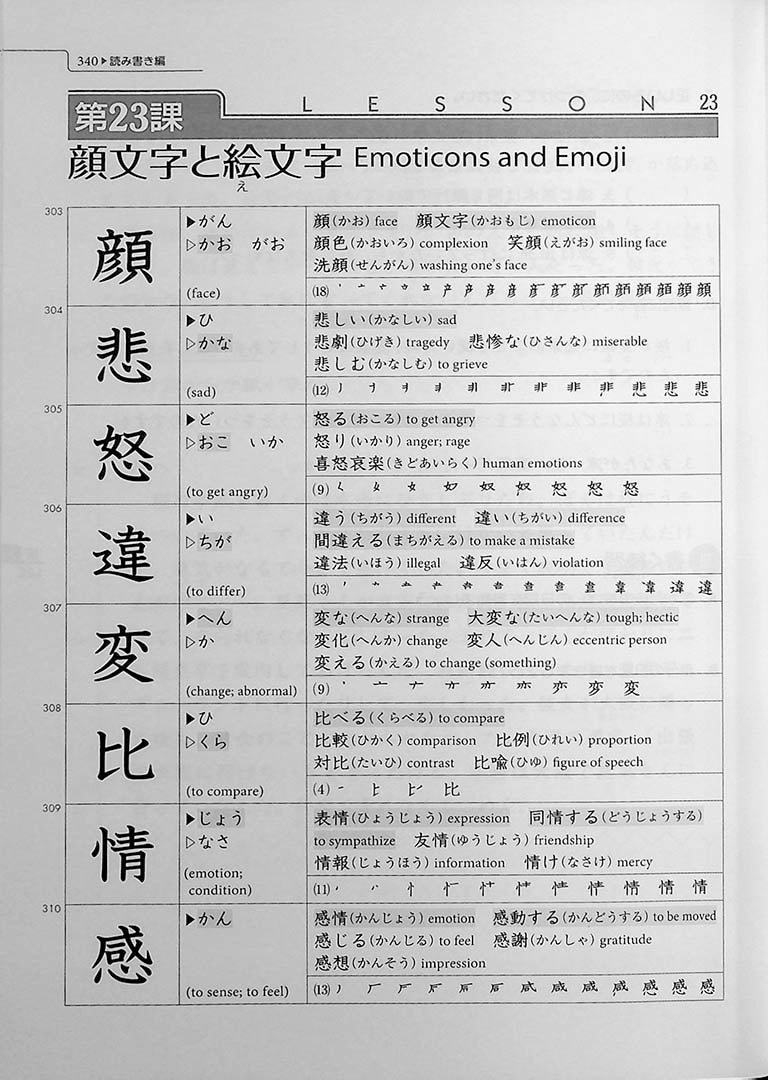 340▶読み書き編
第23課
LESSON 23
顔文字と絵文字 Emoticons and Emoji
え
303
顔
▶がん
▷かお がお
(face)
顔(かお) face 顔文字(かおもじ) emoticon
顔色(かおいろ) complexion 笑顔(えがお) smiling face
洗顔(せんがん) washing one's face
(18)
304
悲
▶ひ
▷かな
(sad)
悲しい(かなしい) sad
悲劇(ひげき) tragedy 悲惨な(ひさんな) miserable
悲しむ(かなしむ) to grieve
(12)
305
怒
▶ど
▷おこ いか
(to get angry)
怒る(おこる) to get angry
怒り(いかり) anger; rage
喜怒哀楽(きどあいらく) human emotions
(9)
306
違
▶い
▷ちが
(to differ)
違う(ちがう) different 違い(ちがい) difference
間違える(まちがえる) to make a mistake
違法(いほう) illegal 違反(いはん) violation
(13)
307
変
▶へん
▷か
(change; abnormal)
変な(へんな) strange 大変な(たいへんな) tough; hectic
変化(へんか) change 変人(へんじん) eccentric person
変える(かえる) to change (something)
(9)
308
比
▶ひ
▷くら
(to compare)
比べる(くらべる) to compare
比較(ひかく) comparison 比例(ひれい) proportion
対比(たいひ) contrast 比喩(ひゆ) figure of speech
(4)
309
情
▶じょう
▷なさ
(emotion;
condition)
表情(ひょうじょう) expression 同情する(どうじょうする)
to sympathize 友情(ゆうじょう) friendship
情報(じょうほう) information 情け(なさけ) mercy
(11)
310
感
▶かん
(to sense; to feel)
感情(かんじょう) emotion 感動する(かんどうする) to be moved
感じる(かんじる) to feel 感謝(かんしゃ) gratitude
感想(かんそう) impression
(13)